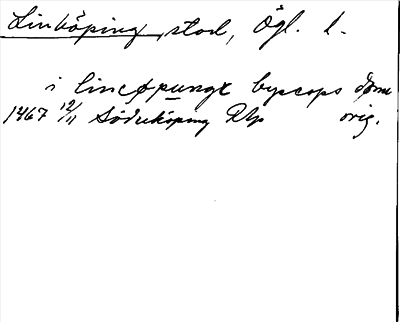 Linköping, stad, Ögl. l.
i lincøpungx byscops døme
1467 12/11 Söderköping RAp orig.